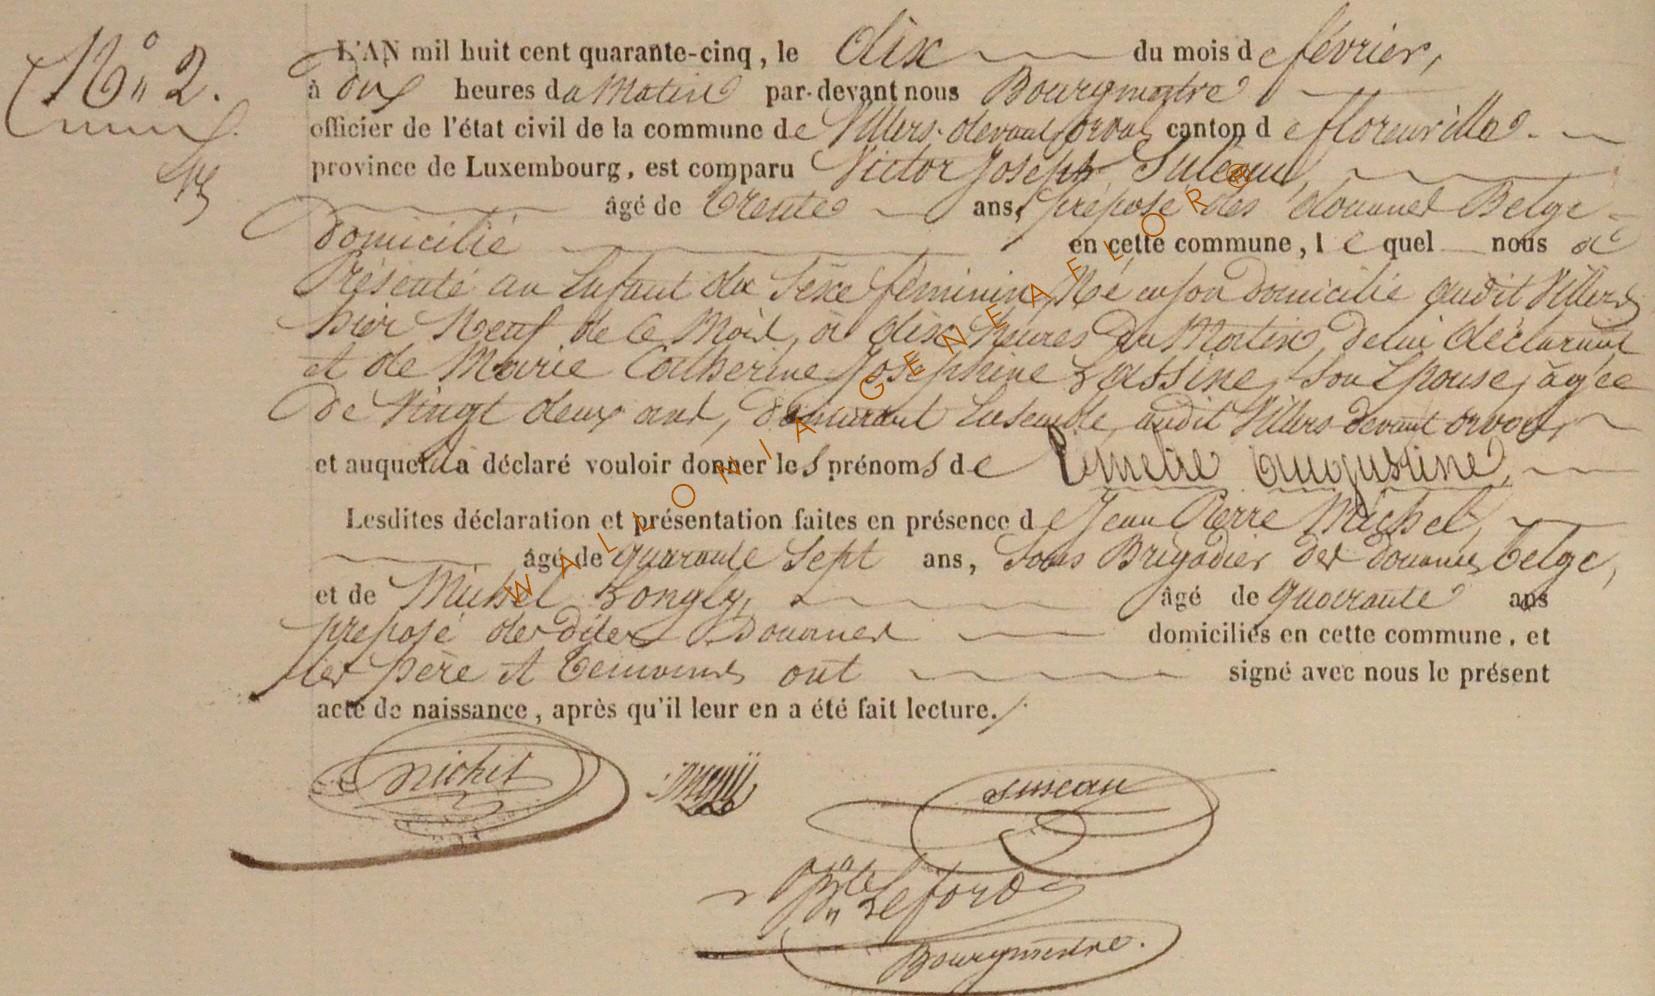 N° 2.
L'AN mil huit cent quarante-cinq, le dix du mois de février,
à onze heures du Matin par-devant nous Bourgmestre
officier de l'état civil de la commune de Villers-devant orval canton de florenville.
province de Luxembourg, est comparu Victor Joseph
âgé de trente ans, préposé des douanes Belge
Domicilié en cette commune, lequel nous a
Présenté un Enfant du Sexe féminin, Né en son Domicilié audit Villers
hier Neuf de ce Mois, à dix heures du Matin, de lui déclarant
et de Marie Catherine Josephine Lassine, son Epouse, agée
De Vingt deux ans, Demeurant Ensemble audit Villers devant orval,
et auquel il a déclaré vouloir donner les prénoms de Augustine,
Lesdites déclaration et présentation faites en présence de Jean Pierre Michel,
âgé de quarante Sept ans, Sous Brigadier des Douanes belge,
et de Michel Longly, âgé de quarante ans
préposé des dites Douanes domiciliés en cette commune, et
les père et temoins ont signé avec nous le présent
acte de naissance, après qu'il leur en a été fait lecture.
Michel
Bourgmestre.
WALLONIA GENEAFLOR@